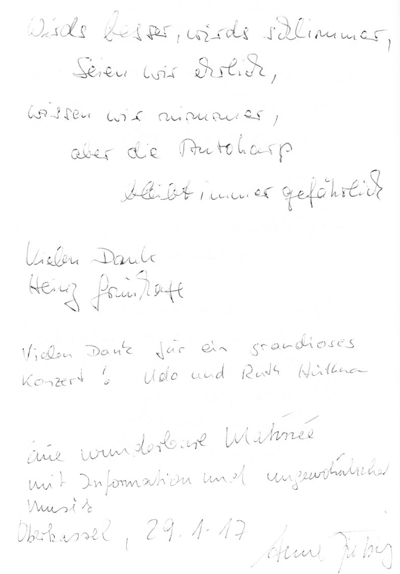 Wirds besser, wirds schlimmer,
Seien wir ehrlich,
wissen wir nimmer,
aber die Autoharp
bleibt immer gefährlich
Vielen Dank
Heinz
Vielen Dank für ein grandioses
Konzert! Udo und Ruth
Eine wunderbare Matinée
mit Information und ungewöhnlicher
Musik
Oberkassel, 29.1.17